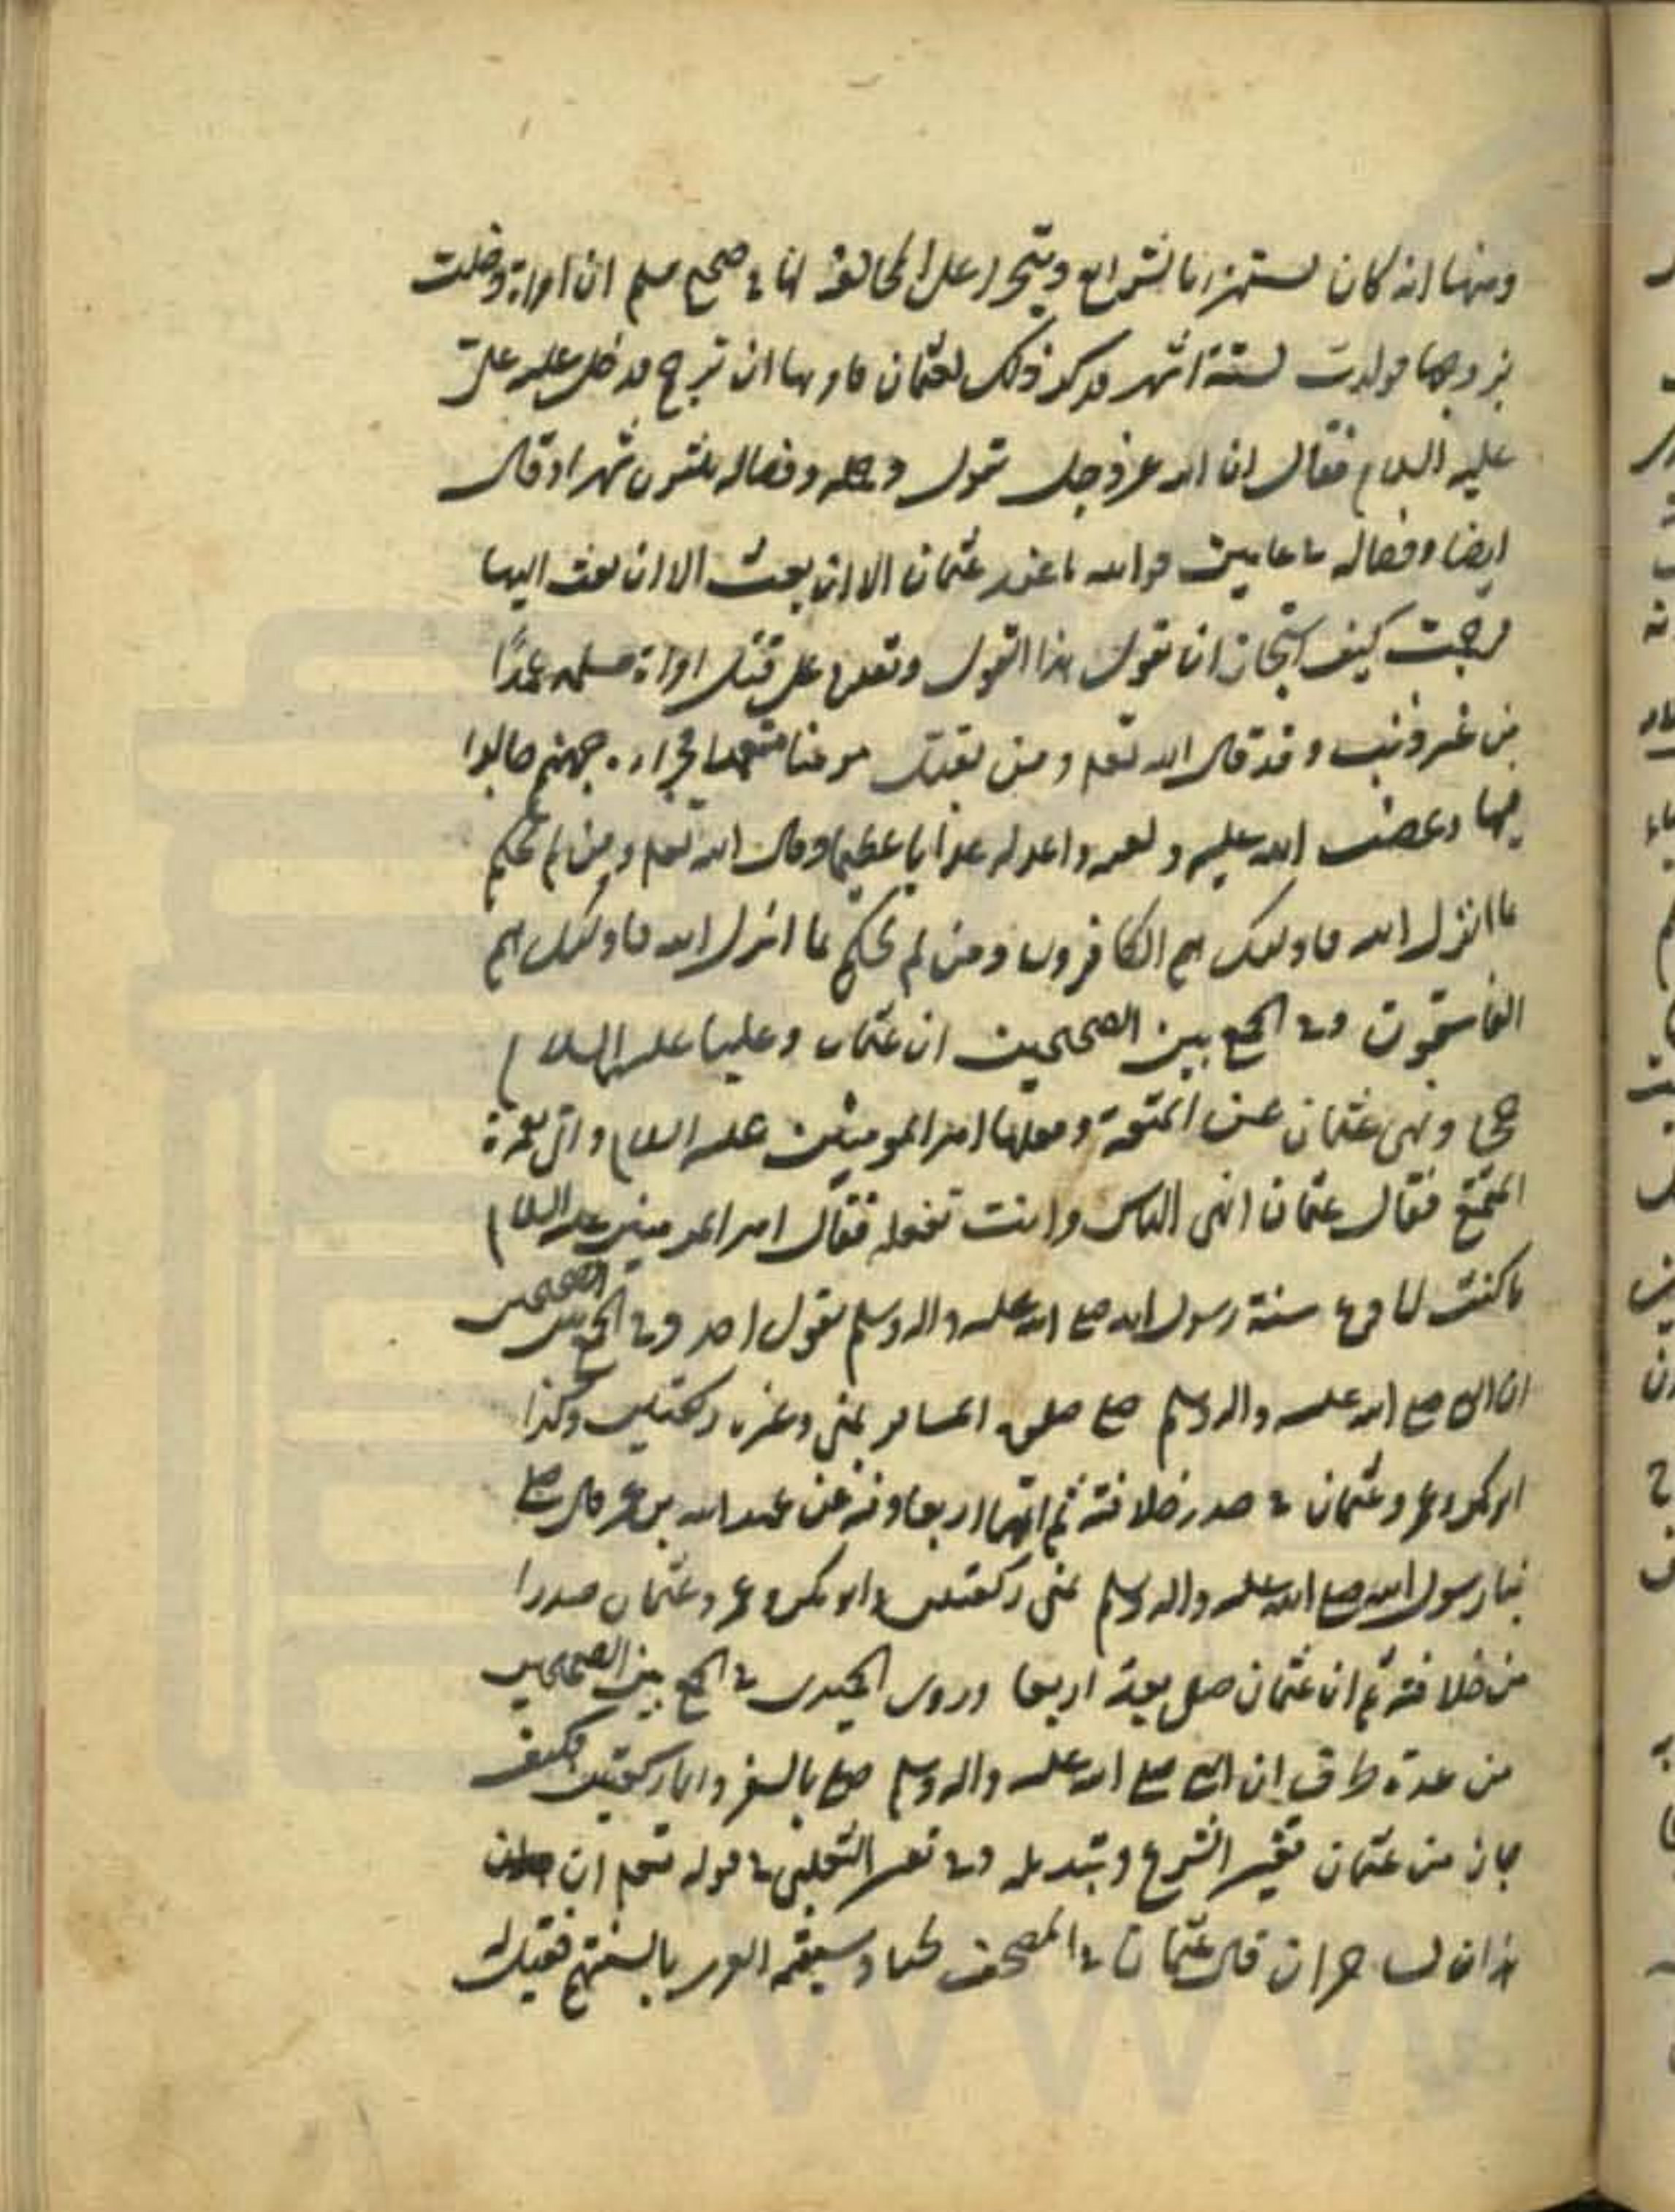 ومنها انه كان يستهزا بالشرايع ويتجرا على المخالفة لها في صحيح مسلم ان امراة دخلت
بزوجها فولدت لستة اشهر فذكر ذلك لعثمان فامر بها ان ترجم فدخل عليه على
عليه السلام فقال ان الله عز وجل يقول وحمله وفصاله ثلثون شهرا وقال
ايضا وفصاله في عامين فوالله ما عند عثمان الا ان بعث الا ان بعث اليها
فرجمت كيف استجاز ان يقول هذا القول ويقدم على قتل امراة مسلمة عمدًا
من غير ذنب وقد قال الله تعالى ومن يقتل مومنا متعمدا فجزاءه جهنم خالدا
فيها وغضب الله عليه ولعنه واعد له عذابا عظيما وقال الله تعالى ومن لم يحكم
بما انزل الله فاولئك هم الكافرون ومن لم يحكم بما انزل الله فاولئك هم
الفاسقون وفي الجمع بين الصحيحين ان عثمان وعليا عليه السلام
حجا ونهى عثمان عن المتعة وفعلها امير المومنين عليه السلام واتى بعمرة
التمتع فقال عثمان انهى الناس وانت تفعله فقال امير المومنين عليه السلام
ما كنت لادع سنة رسول الله صلى الله عليه واله وسلم بقول احد وفي الجمع بين الصحيحين
ان النبي صلى الله عليه واله وسلم صلى صلوة المسافر بمنى وغيره ركعتين وكذا
ابو بكر وعمر وعثمان في صدر خلافته ثم اتمها اربعا وفيه عن عبد الله بن عمر قال صلى
بنا رسول الله صلى الله عليه واله وسلم بمنى ركعتين وابو بكر وعمر وعثمان صدرا
من خلافته ثم ان عثمان صلى بعد اربعا وروى الحميدى في الجمع بين الصحيحين
من عدة طرق ان النبي صلى الله عليه واله وسلم صلى بالسفر دايما ركعتين فكيف
جاز من عثمان تغيير الشرع وتبديله وفي تفسير الثعلبى في قوله تعالى ان
هذان لساحران قال عثمان في المصحف لحنا وسيقمه العرب بالسنتهم فقيل له